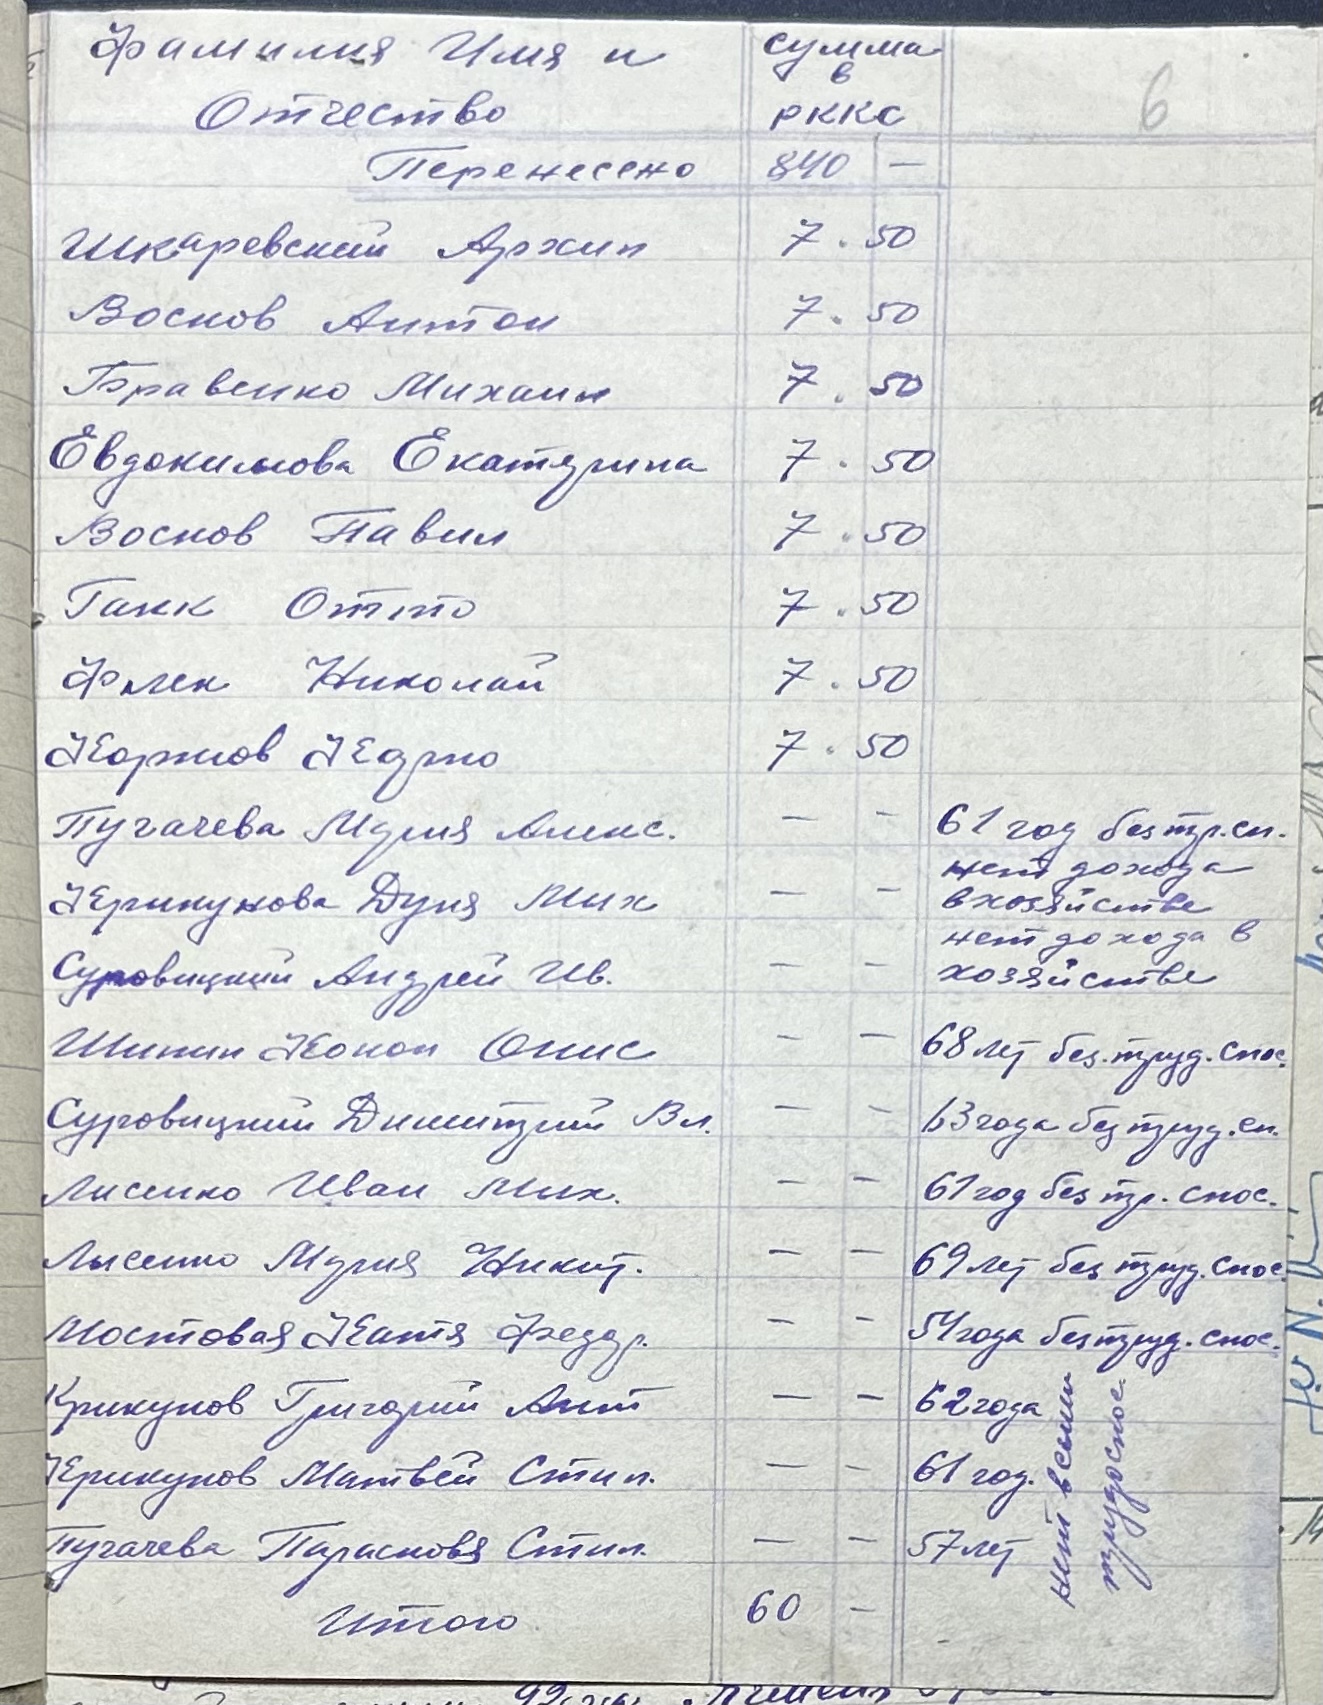 Фамилия Имя и сумма
в
Отчество РККС
6
Перенесено 840 -
Шкаревский Архип 7.50
Воснов Антон 7.50
Михаил 7.50
Евдокимова Екатерина 7.50
Воснов Павил 7.50
Ганк Отто 7.50
Флек Николай 7.50
7.50
Пугачева Мария Алекс. - - 61 год без тр.сп.
нет дохода
Крикунова Дуня Мих - - в хозяйстве
нет дохода в
Суровицкий Андрей Ив. - - хозяйстве
Шипил Конон Онис - - 68 лет без.труд.спос.
Суровицкий Димитрий Вл. - - 63 года без труд.сп.
Лисенко Иван Мих. - - 61 год без тр. спос.
Лысенко Мария Никит. - - 69 лет без труд.спос.
Мостовая Катя Федор. - - 54 года без труд.спос.
Крикунов Григорий Ант - - 62 года
Крикунов Матвей Степ. - - 61 год.
Пугачева Парасковя Степ. - - 57 лет
нет в семи
трудоспос.
Итого 60 -